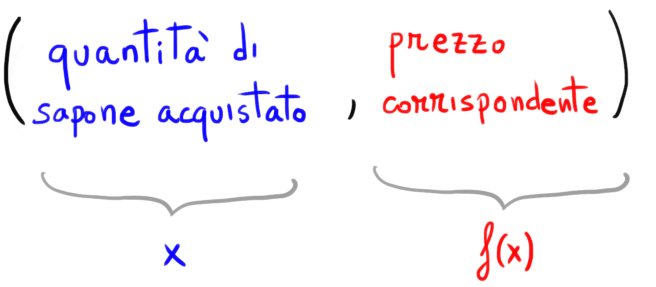 ( quantità di
sapone acquistato , prezzo
corrispondente )
x
f(x)